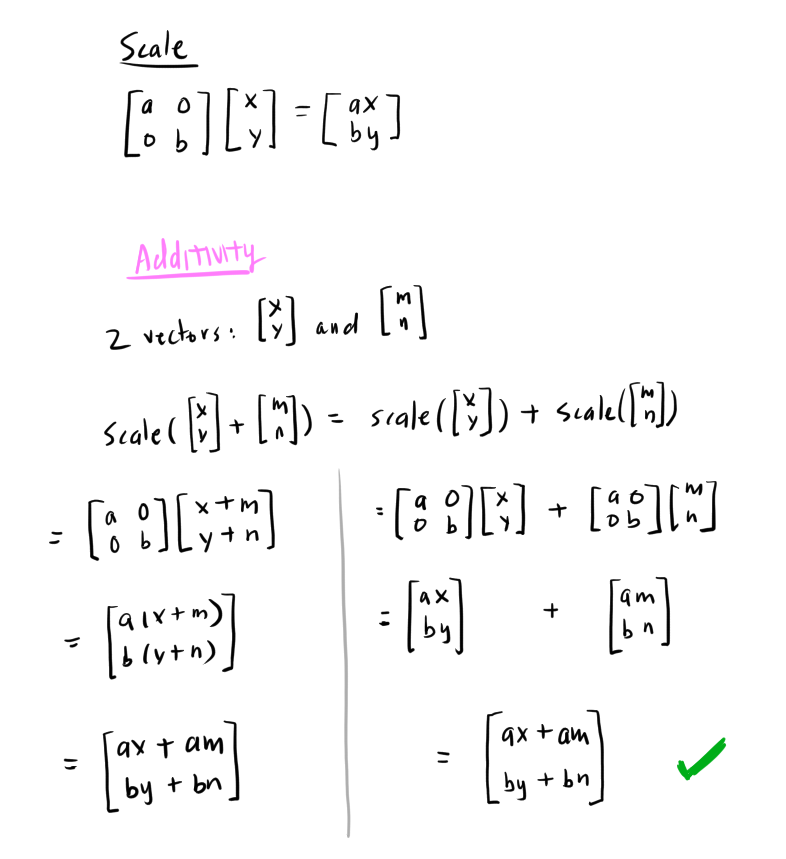 Scale
[a 0; 0 b] [x; y] = [ax; by]
Additivity
2 vectors: [x; y] and [m; n]
Scale([x; y] + [m; n]) = scale([x; y]) + scale([m; n])
= [a 0; 0 b] [x+m; y+n]
= [a(x+m); b(y+n)]
= [ax + am; by + bn]
= [a 0; 0 b] [x; y] + [a 0; 0 b] [m; n]
= [ax; by] + [am; bn]
= [ax + am; by + bn] ✓